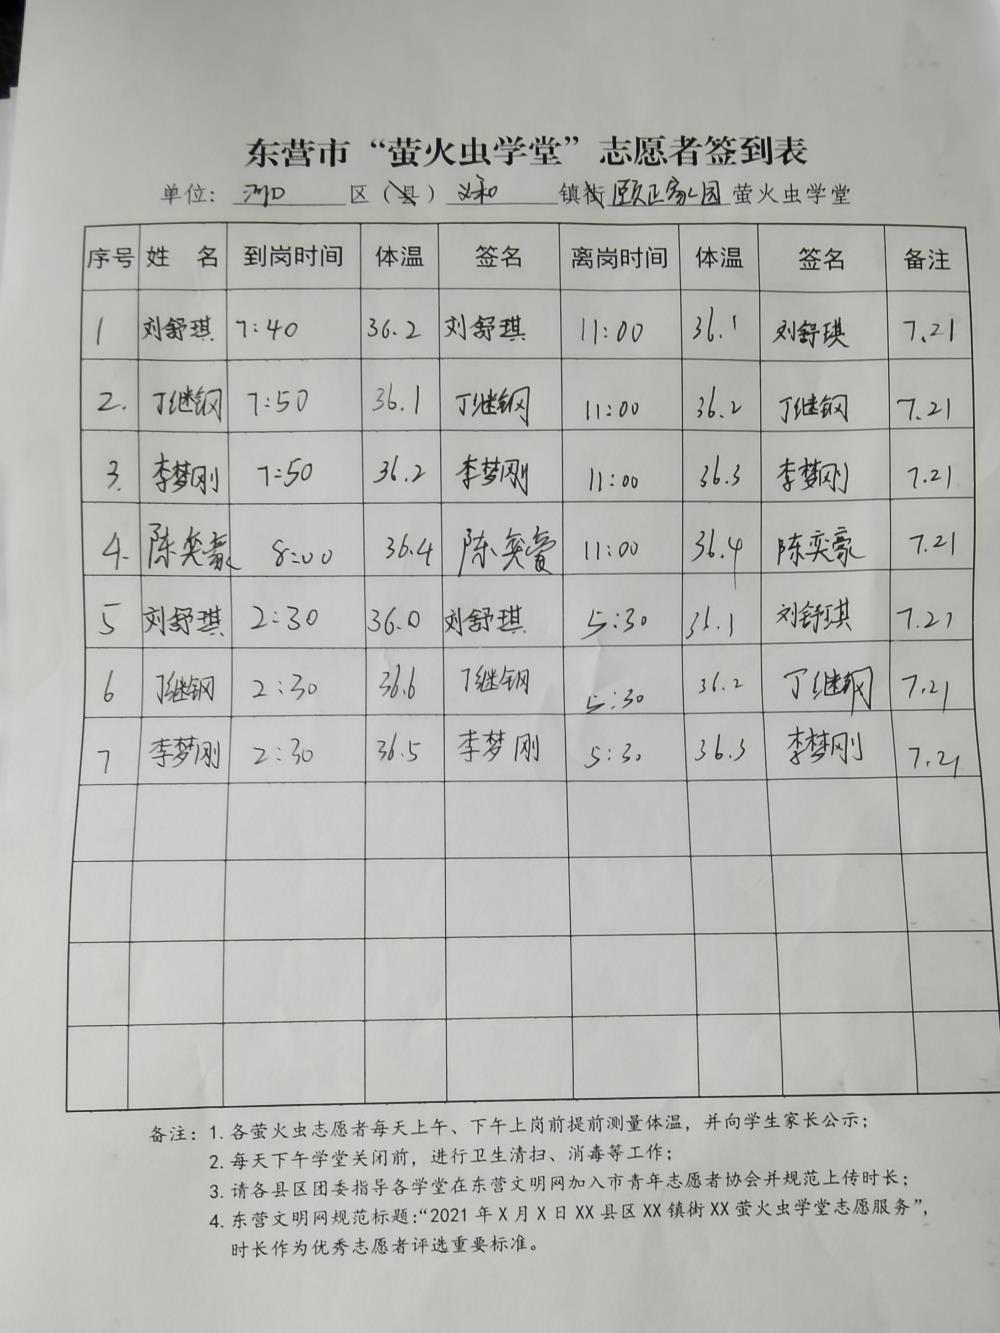 东营市“萤火虫学堂”志愿者签到表
单位：河口区（县）义和镇街颐正家园萤火虫学堂
序号 姓 名 到岗时间 体温 签名 离岗时间 体温 签名 备注
1 刘舒琪 7:40 36.2 刘舒琪 11:00 36.1 刘舒琪 7.21
2. 丁继钢 7:50 36.1 丁继钢 11:00 36.2 丁继钢 7.21
3. 李梦刚 7:50 36.2 李梦刚 11:00 36.3 李梦刚 7.21
4. 陈奕豪 8:00 36.4 陈奕豪 11:00 36.4 陈奕豪 7.21
5 刘舒琪 2:30 36.0 刘舒琪 5:30 36.1 刘舒琪 7.21
6 丁继钢 2:30 36.6 丁继钢 5:30 36.2 丁继钢 7.21
7 李梦刚 2:30 36.5 李梦刚 5:30 36.3 李梦刚 7.21
备注：1. 各萤火虫志愿者每天上午、下午上岗前提前测量体温，并向学生家长公示；
2. 每天下午学堂关闭前，进行卫生清扫、消毒等工作；
3. 请各县区团委指导各学堂在东营文明网加入市青年志愿者协会并规范上传时长；
4. 东营文明网规范标题：“2021 年 X 月 X 日 XX 县区 XX 镇街 XX 萤火虫学堂志愿服务”，
时长作为优秀志愿者评选重要标准。